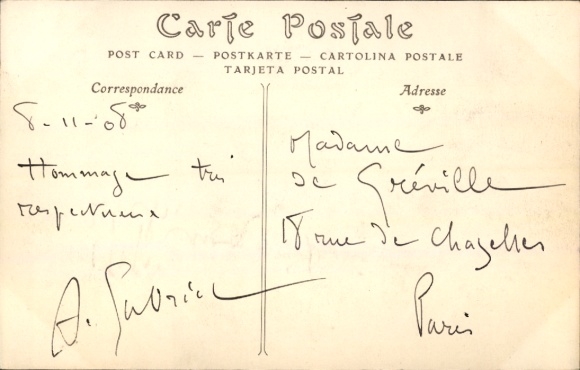 Carte Postale
POST CARD — POSTKARTE — CARTOLINA POSTALE
TARJETA POSTAL
Correspondance
8-11-08
Hommage très
respectueux
A. Gabriel
Adresse
Madame
de Gréville
18 rue de Chazelles
Paris